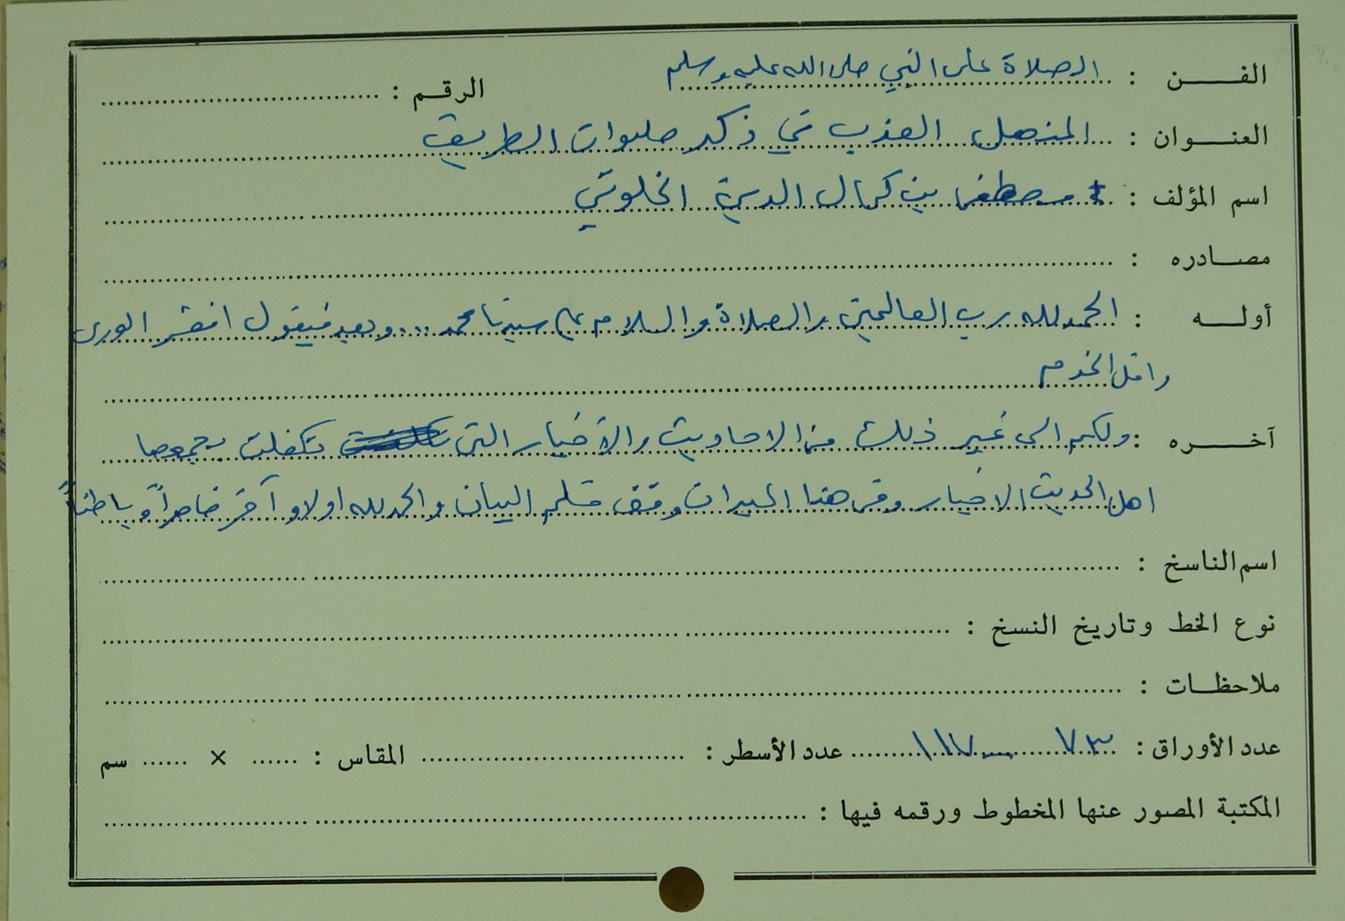 الفن : الصلاة على النبي صلى الله عليه وسلم الرقم :
العنوان : المنهل العذب في ذكر صلوات الطريق
اسم المؤلف : مصطفى بن كمال الدين الخلوتي
مصادره :
أوله : الحمد لله رب العالمين والصلاة والسلام على سيدنا محمد ... وبعد فيقول افقر الورى
واقل الخدم
آخره : ولكم الى غير ذلك من الاحاديث والأخبار التي تكفلت بجمعها
اهل الحديث الاخيار وفي هنا الميدان وقف قلم البيان والحمد لله اولا وآخر ظاهراً وباطناً
اسم الناسخ :
نوع الخط وتاريخ النسخ :
ملاحظات :
عدد الأوراق : ٧٣ — ١١٧ عدد الأسطر : المقاس : × سم
المكتبة المصور عنها المخطوط ورقمه فيها :